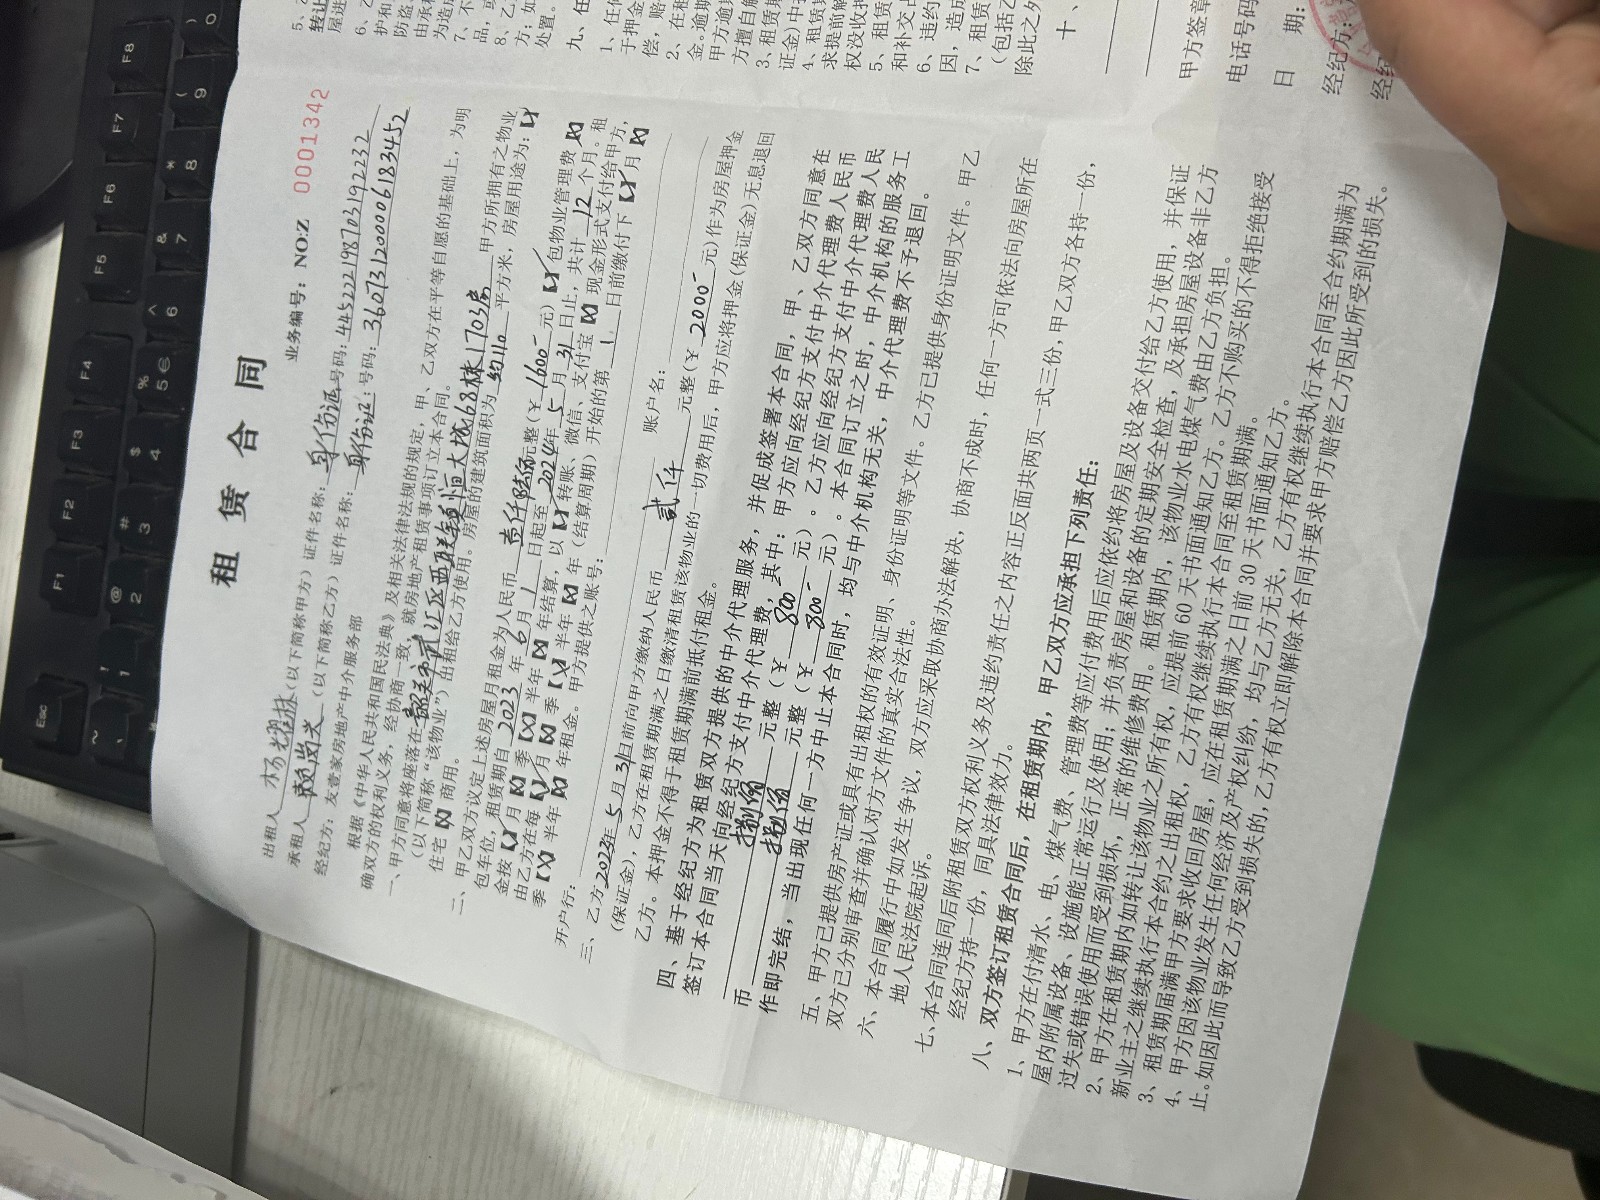 租赁合同
业务编号：NO:Z 0001342
出租人 杨 (以下简称甲方) 证件名称：身份证 号码：445222198703192232
承租人 (以下简称乙方) 证件名称：身份证 号码：360731200006183452
经纪方：友壹家房地产中介服务部
根据《中华人民共和国民法典》及相关法律法规的规定，甲、乙双方在平等自愿的基础上，为明
确双方的权利义务，经协商一致，就房地产租赁事项订立本合同。
一、甲方同意将座落在 恒大城68栋1703房 甲方所拥有之物业
（以下简称“该物业”）出租给乙方使用。房屋的建筑面积为 约110 平方米，房屋用途为：【✓】
住宅【✗】商用。
二、甲乙双方议定上述房屋月租金为人民币 壹仟陆佰 元整（￥1600- 元）【✓】包物业管理费【✗】
包车位，租赁期自 2023 年 6 月 1 日起至 2024年 5 月 31 日止，共计 12 个月。租
金按【✓】月【✗】季【✗】半年【✗】年结算，以【✓】转账、微信、支付宝【✗】现金形式支付给甲方，
由乙方在每【✓】月【✗】季【✓】半年【✗】年（结算周期）开始的第 1 日前缴付下【✓】月【✗】
季【✗】半年【✗】年租金。甲方提供之账号：
开户行： 账户名：
三、乙方 2023年 5 月 31日前向甲方缴纳人民币 贰仟 元整（￥2000- 元）作为房屋押金
（保证金），乙方在租赁期满之日缴清租赁该物业的一切费用后，甲方应将押金（保证金）无息退回
乙方。本押金不得于租赁期满前抵付租金。
四、基于经纪方为租赁双方提供的中介代理服务，并促成签署本合同，甲、乙双方同意在
签订本合同当天向经纪方支付中介代理费，其中：甲方应向经纪方支付中介代理费人民币
捌佰 元整（￥800- 元）。乙方应向经纪方支付中介代理费人民
币 捌佰 元整（￥800- 元）。本合同订立之时，中介机构的服务工
作即完结，当出现任何一方中止本合同时，均与中介机构无关，中介代理费不予退回。
五、甲方已提供房产证或具有出租权的有效证明、身份证明等文件。乙方已提供身份证明文件。甲乙
双方已分别审查并确认对方文件的真实合法性。
六、本合同履行中如发生争议，双方应采取协商办法解决，协商不成时，任何一方可依法向房屋所在
地人民法院起诉。
七、本合同连同后附租赁双方权利义务及违约责任之内容正反面共两页一式三份，甲乙双方各持一份，
经纪方持一份，同具法律效力。
八、双方签订租赁合同后，在租赁期内，甲乙双方应承担下列责任：
1、甲方在付清水、电、煤气费、管理费等应付费用后应依约将房屋及设备交付给乙方使用，并保证
屋内附属设备、设施能正常运行及使用；并负责房屋和设备的定期安全检查，及承担房屋设备非乙方
过失或错误使用而受到损坏，正常的维修费用。租赁期内，该物业水电煤气费由乙方负担。
2、甲方在租赁期内如转让该物业之所有权，应提前 60 天书面通知乙方。乙方不购买的不得拒绝接受
新业主之继续执行本合约之出租权，乙方有权继续执行本合同至租赁期满。
3、租赁期届满甲方要求收回房屋，应在租赁期满之日前 30 天书面通知乙方。
4、甲方因该物业发生任何经济及产权纠纷，均与乙方无关，乙方有权继续执行本合同至合约期满为
止。如因此而导致乙方受到损失的，乙方有权立即解除本合同并要求甲方赔偿乙方因此所受到的损失。
5、乙
转让
屋进
6、乙
护和
防盗、
由承
为造成
7、不
品，或
8、乙
方；如
处置。
九、任
1、任何
于押金
偿，赔
2、在租
金。逾期
甲方逾
方擅自解
3、租赁期
证金）中
4、租赁期
求提前解
权没收押
5、租赁
和补交
6、违约
因，造成
7、租赁
（包括乙
除此之外
十、
甲方签章
电话号码
日 期：
经纪方：
经纪
Esc F1 F2 F3 F4 F5 F6 F7 F8
~ ! 1 @ 2 # 3 $ 4 % 5 ^ 6 & 7 * 8 ( 9 ) 0